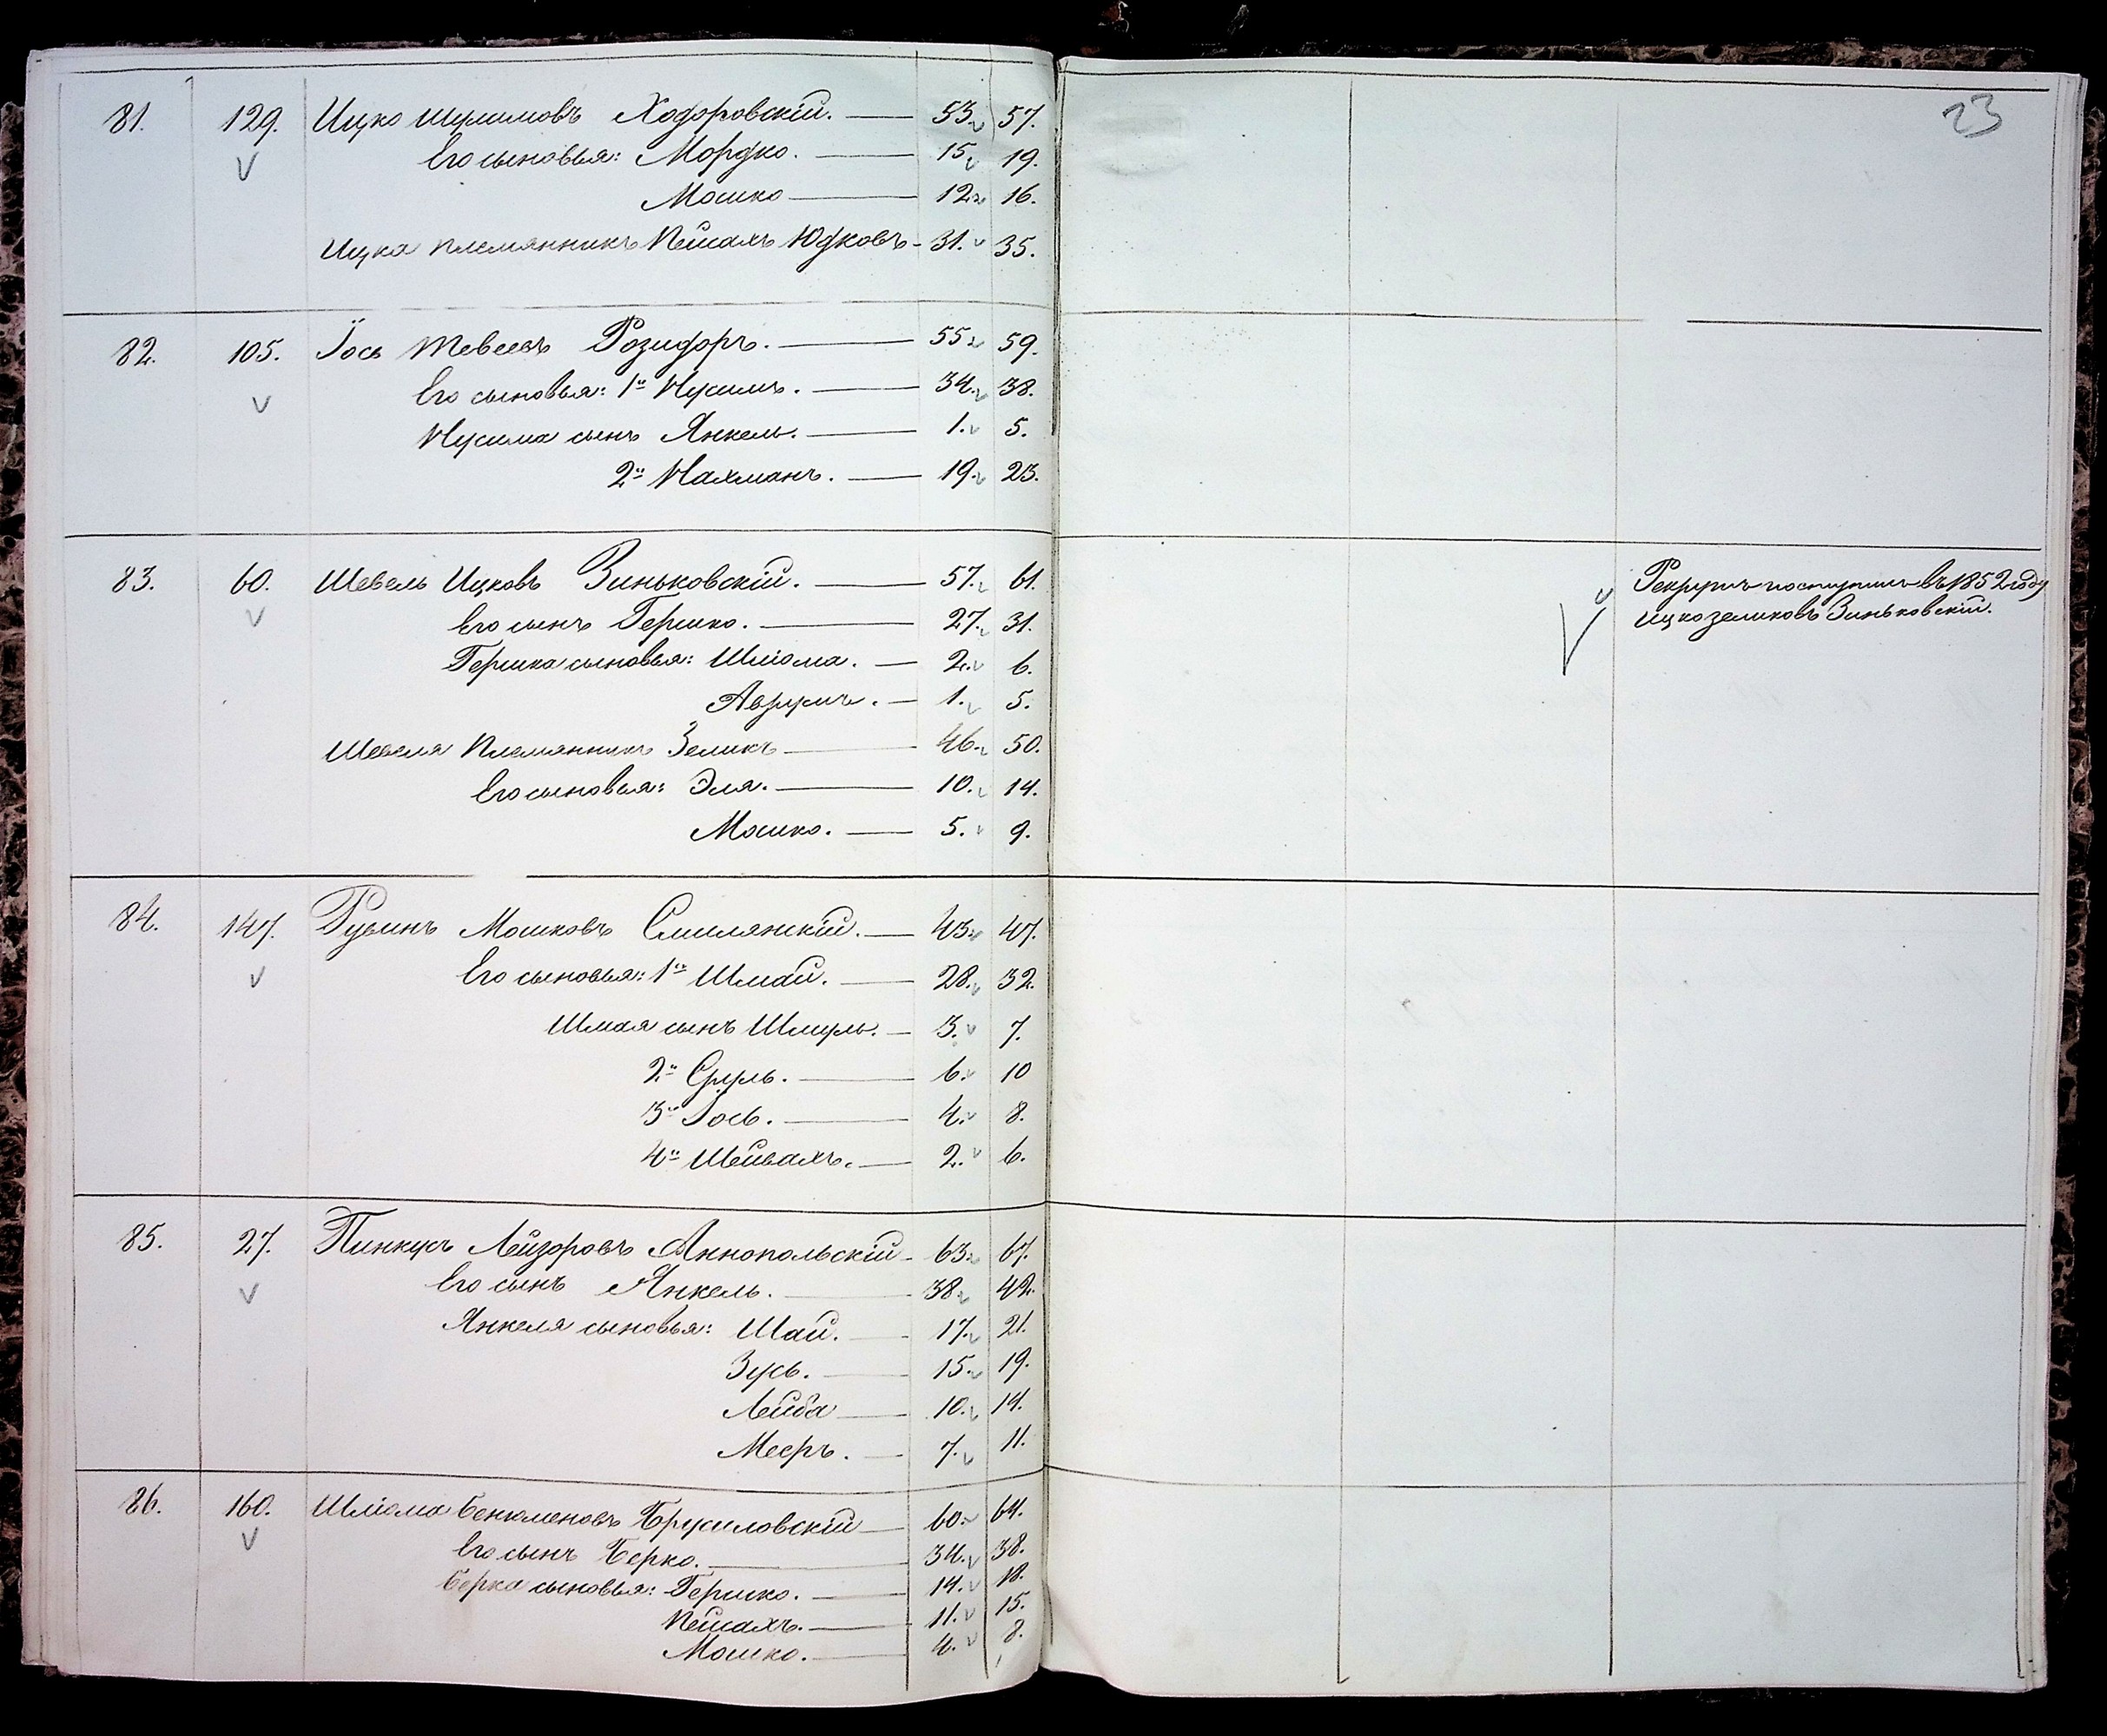 23
81. 129. Ицко Шулимовъ Ходоровскій. 53. 57.
Его сыновья: Мордко. 15. 19.
Мошко 12. 16.
Ицка племянникъ Пейсахъ Юдковъ 31. 35.
82. 105. Іось Тевеевъ Розидоръ. 55. 59.
Его сыновья: 1й Нусимъ. 34. 38.
Нусима сынъ Янкель. 1. 5.
2й Нахманъ. 19. 23.
83. 60. Шевель Ицковъ Зиньковскій. 57. 61. Рекрутъ поступилъ въ 1852 году
Его сынъ Гершко. 27. 31. Ицко Зеликовъ Зиньковскій.
Гершка сыновья: Шліома. 2. 6.
Аврумъ. 1. 5.
Шевеля племянникъ Зеликъ 46. 50.
Его сыновья: Эля. 10. 14.
Мошко. 5. 9.
84. 147. Рувинъ Мошковъ Смилянскій. 43. 47.
Его сыновья: 1й Шмай. 28. 32.
Шмая сынъ Шмуль. 3. 7.
2й Сруль. 6. 10
3й Іось. 4. 8.
4й Шейвахъ. 2. 6.
85. 27. Пинкусъ Лейзоровъ Аннопольскій 63. 67.
Его сынъ Янкель. 38. 42.
Янкеля сыновья: Шай. 17. 21.
Зусь. 15. 19.
Лейба 10. 14.
Мееръ. 7. 11.
86. 160. Шліома Бенюменовъ Брусиловскій 60. 64.
Его сынъ Берко. 34. 38.
Берка сыновья: Гершко. 14. 18.
Пейсахъ. 11. 15.
Мошко. 4. 8.